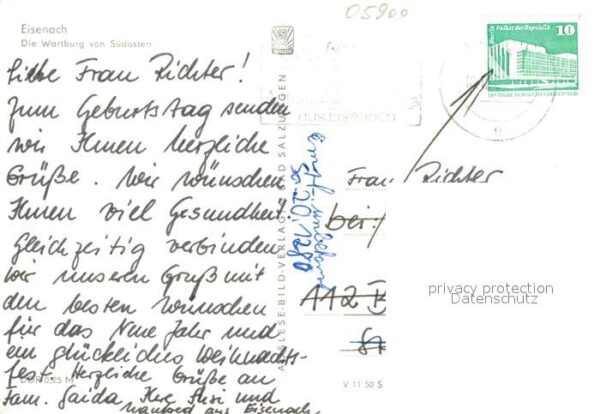 05900
Eisenach
Die Wartburg von Südosten
Liebe Frau Richter!
zum Geburtstag senden
wir Ihnen herzliche
Grüße. Wir wünschen
Ihnen viel Gesundheit.
Gleichzeitig verbinden
wir unseren Gruß mit
den besten Wünschen
für das Neue Jahr und
ein glückliches Weihnachts-
fest. Herzliche Grüße an
Fam. Saida, Ihre Susi und
Manfred aus Eisenach
DDR 0,25 M
AUSLESE-BILD-VERLAG BAD SALZUNGEN
V 11 50 S
Berlin Palast der Republik
10
aus Eisenach
Frau Richter
bei
privacy protection
Datenschutz